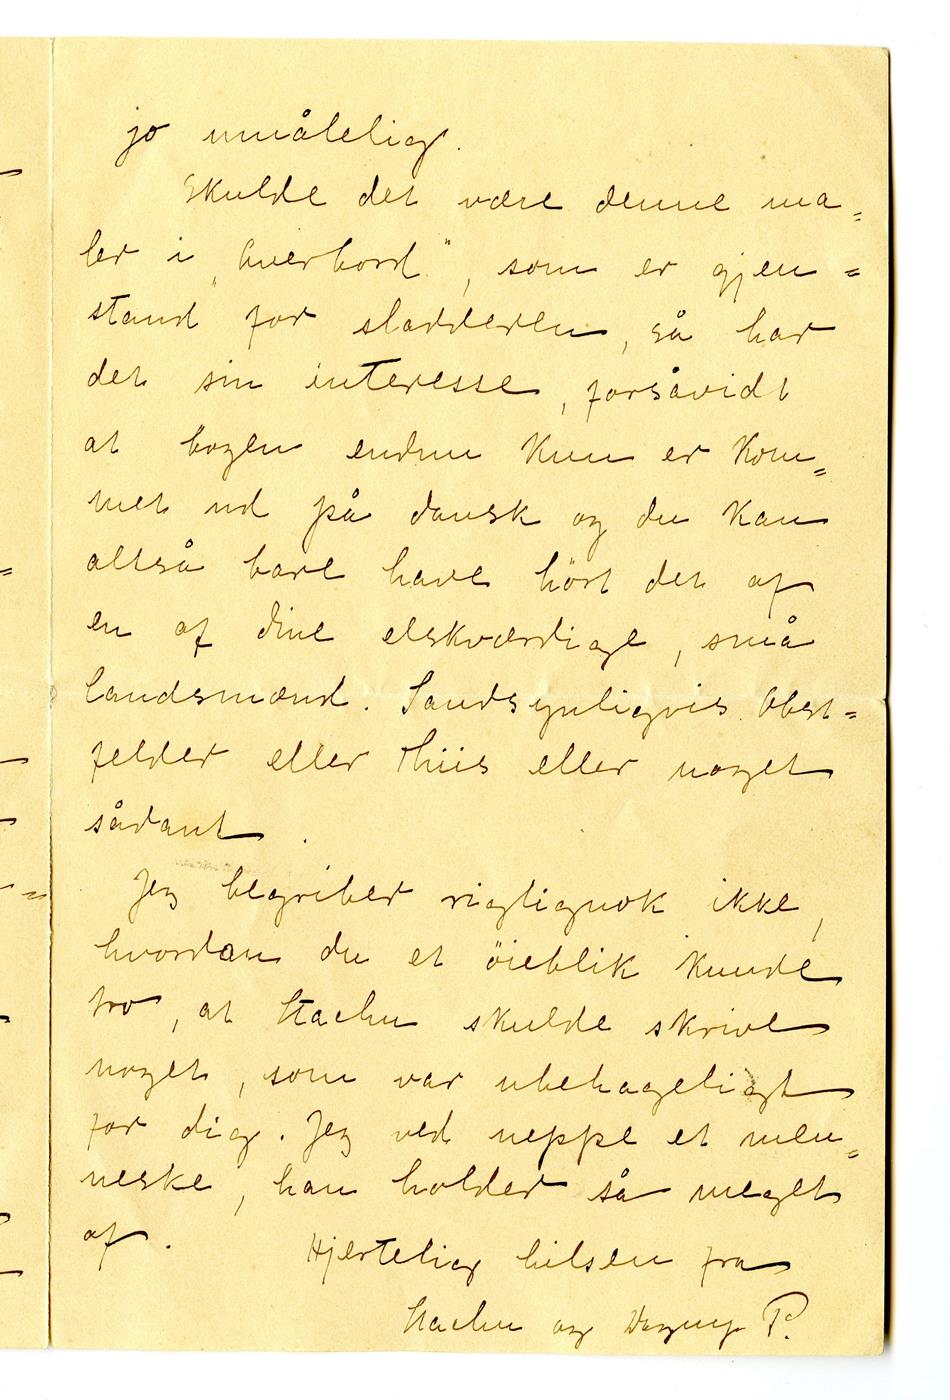 jo umålelig.
Skulde det være denne ma=
ler i „Overbord", som er gjen=
stand for sladderen, så har
det sin interesse, forsåvidt
at bogen endnu kun er kom=
met ud på dansk og du kan
altså bare have hört det af
en af dine elskværdige, små
landsmænd. Sandsynligvis Obst=
felder eller Thiis eller noget
sådant.
Jeg begriber rigtignok ikke,
hvordan du et öieblik kunde
tro, at Stachu skulde skrive
noget, som var ubehageligt
for dig. Jeg ved neppe et men=
neske, han holder så meget
af. Hjertelig hilsen fra
Stachu og Dagny P.